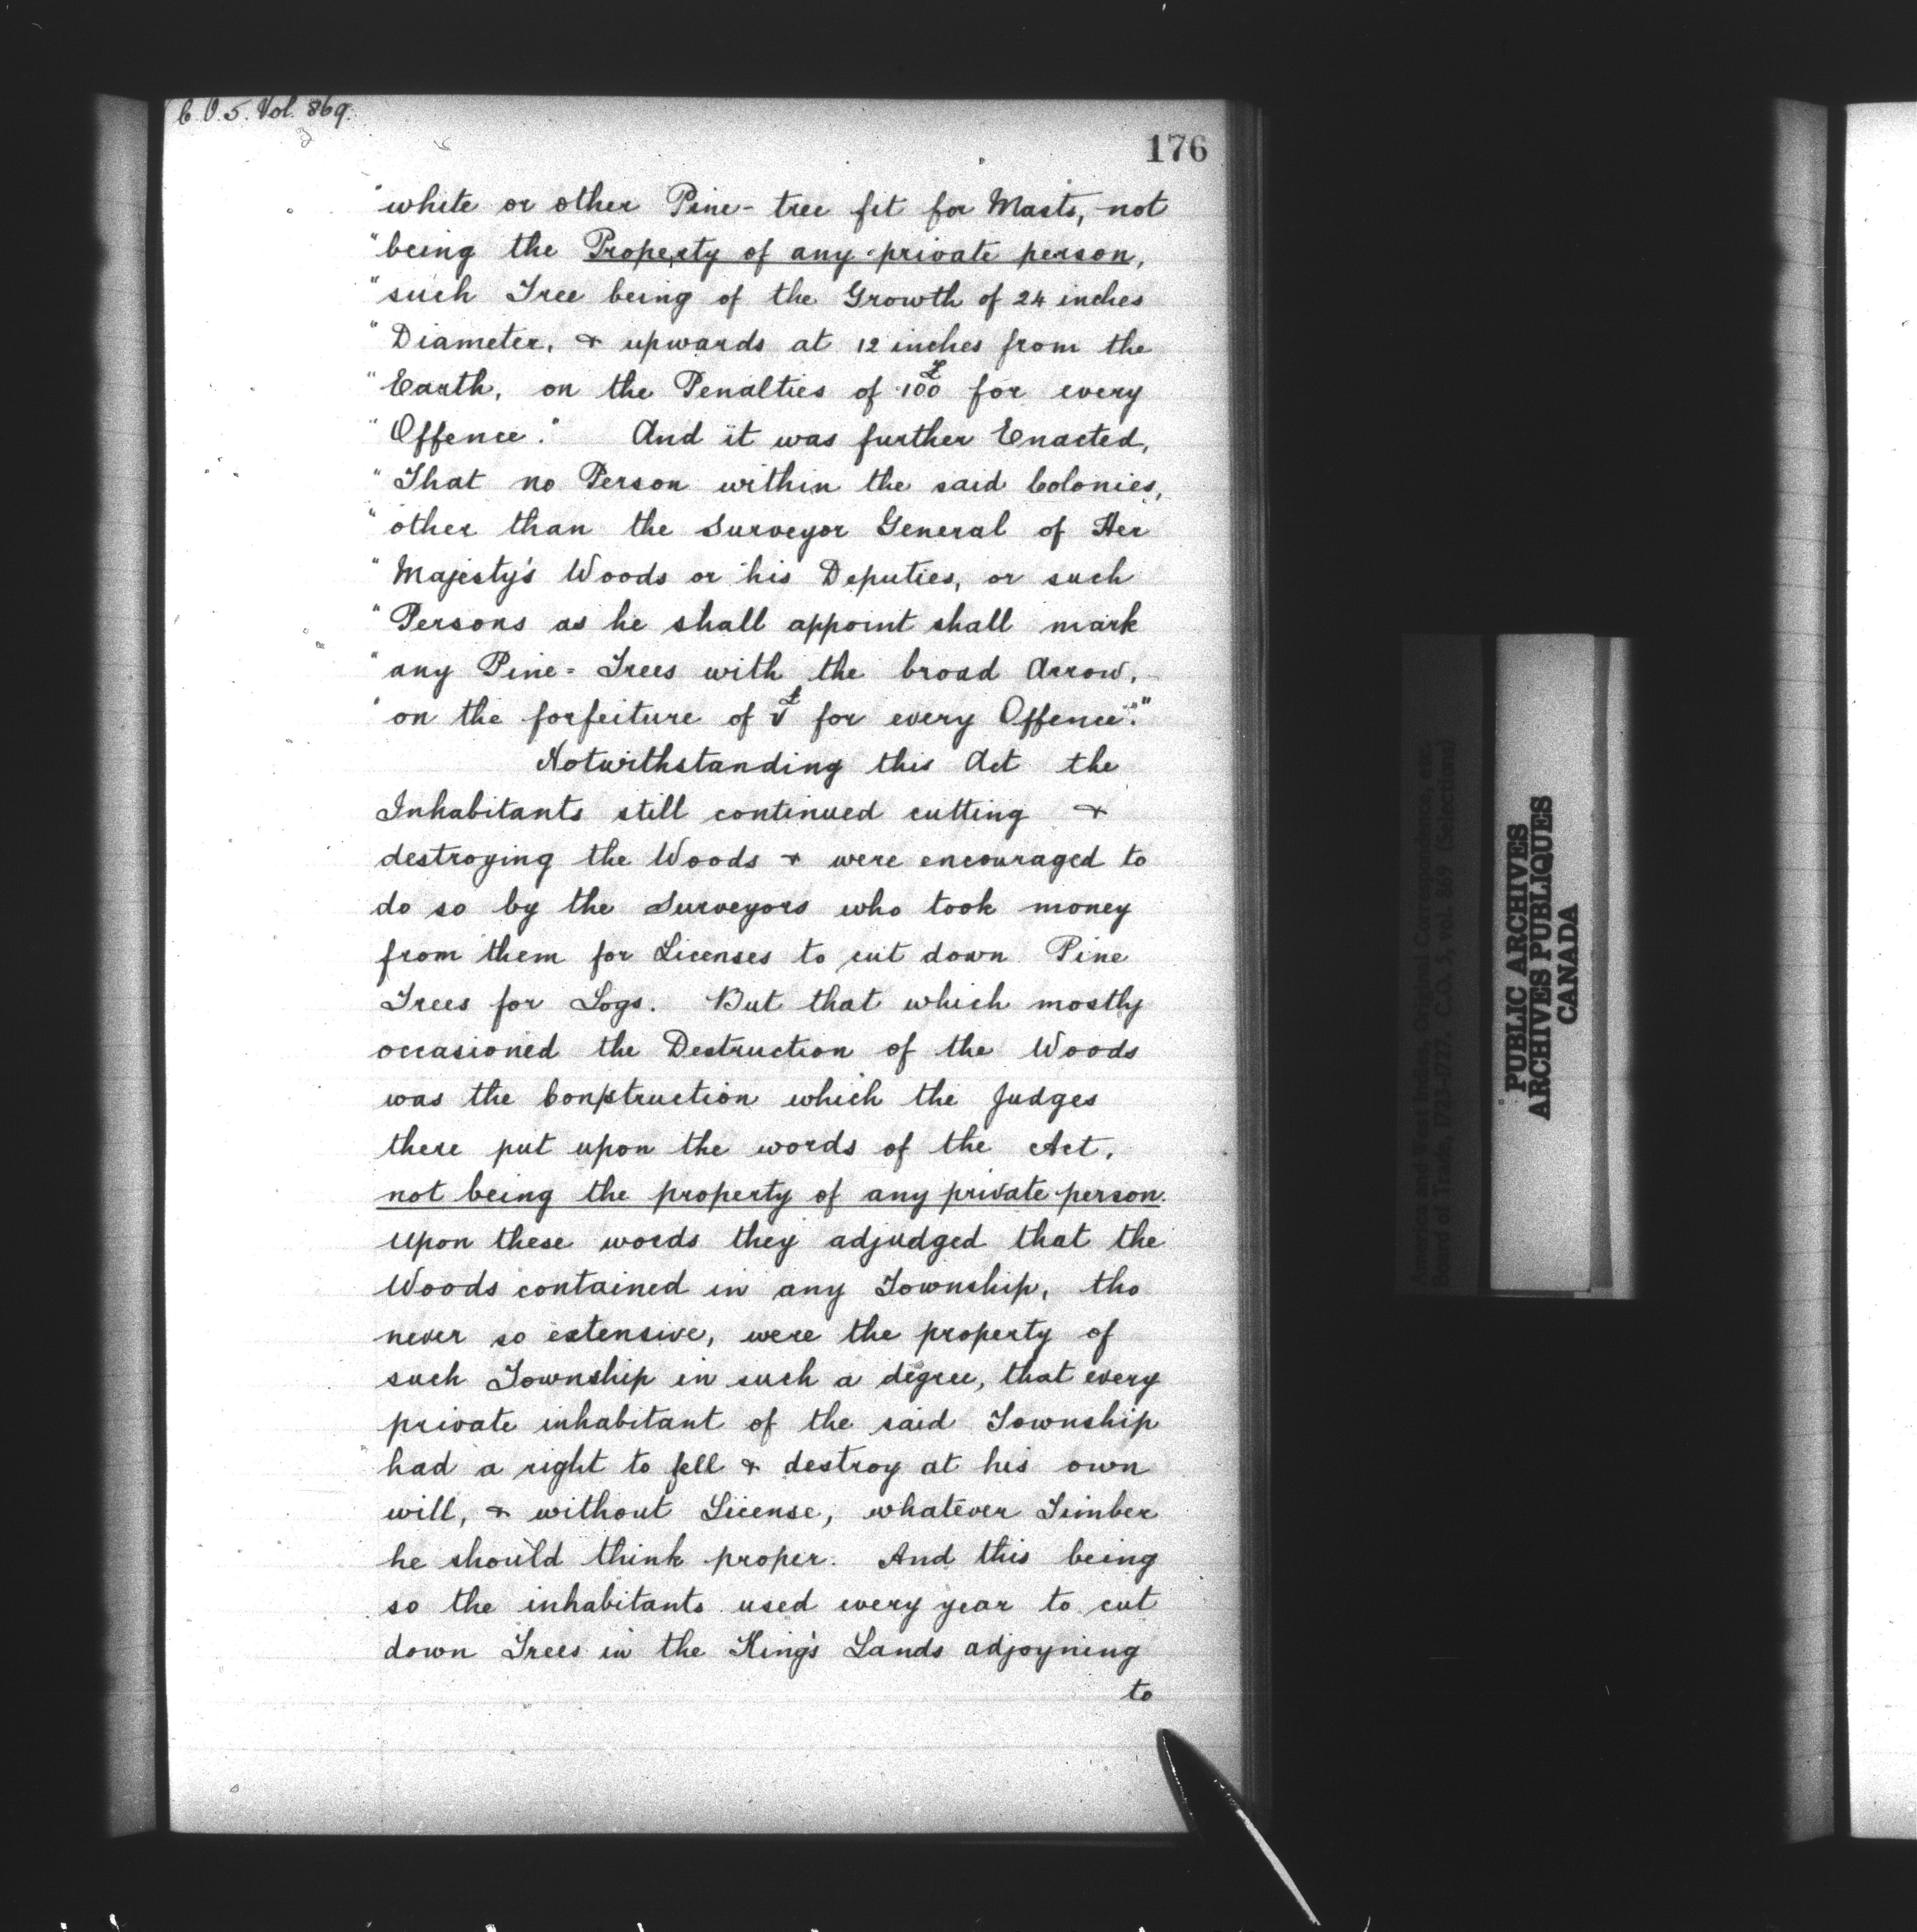 C.O.5. Vol. 869.
176
"white or other Pine-tree fit for Masts, not
"being the Property of any private person,
"such Tree being of the Growth of 24 inches
"Diameter, & upwards at 12 inches from the
"Earth, on the Penalties of 100£ for every
"Offence." And it was further Enacted,
"That no Person within the said Colonies,
"other than the Surveyor General of Her
"Majesty's Woods or his Deputies, or such
"Persons as he shall appoint shall mark
"any Pine=Trees with the broad Arrow,
"on the forfeiture of £ for every Offence."
Notwithstanding this Act the
Inhabitants still continued cutting &
destroying the Woods & were encouraged to
do so by the Surveyors who took money
from them for Licenses to cut down Pine
Trees for Logs. But that which mostly
occasioned the Destruction of the Woods
was the Construction which the Judges
there put upon the words of the Act,
not being the property of any private person.
Upon these words they adjudged that the
Woods contained in any Township, tho
never so extensive, were the property of
such Township in such a degree, that every
private inhabitant of the said Township
had a right to fell & destroy at his own
will, & without License, whatever Timber
he should think proper. And this being
so the inhabitants used every year to cut
down Trees in the King's Lands adjoyning
to
America and West Indies, Original Correspondence, etc.
Board of Trade, 1723-1727. C.O. 5, vol. 869 (Selections)
PUBLIC ARCHIVES
ARCHIVES PUBLIQUES
CANADA